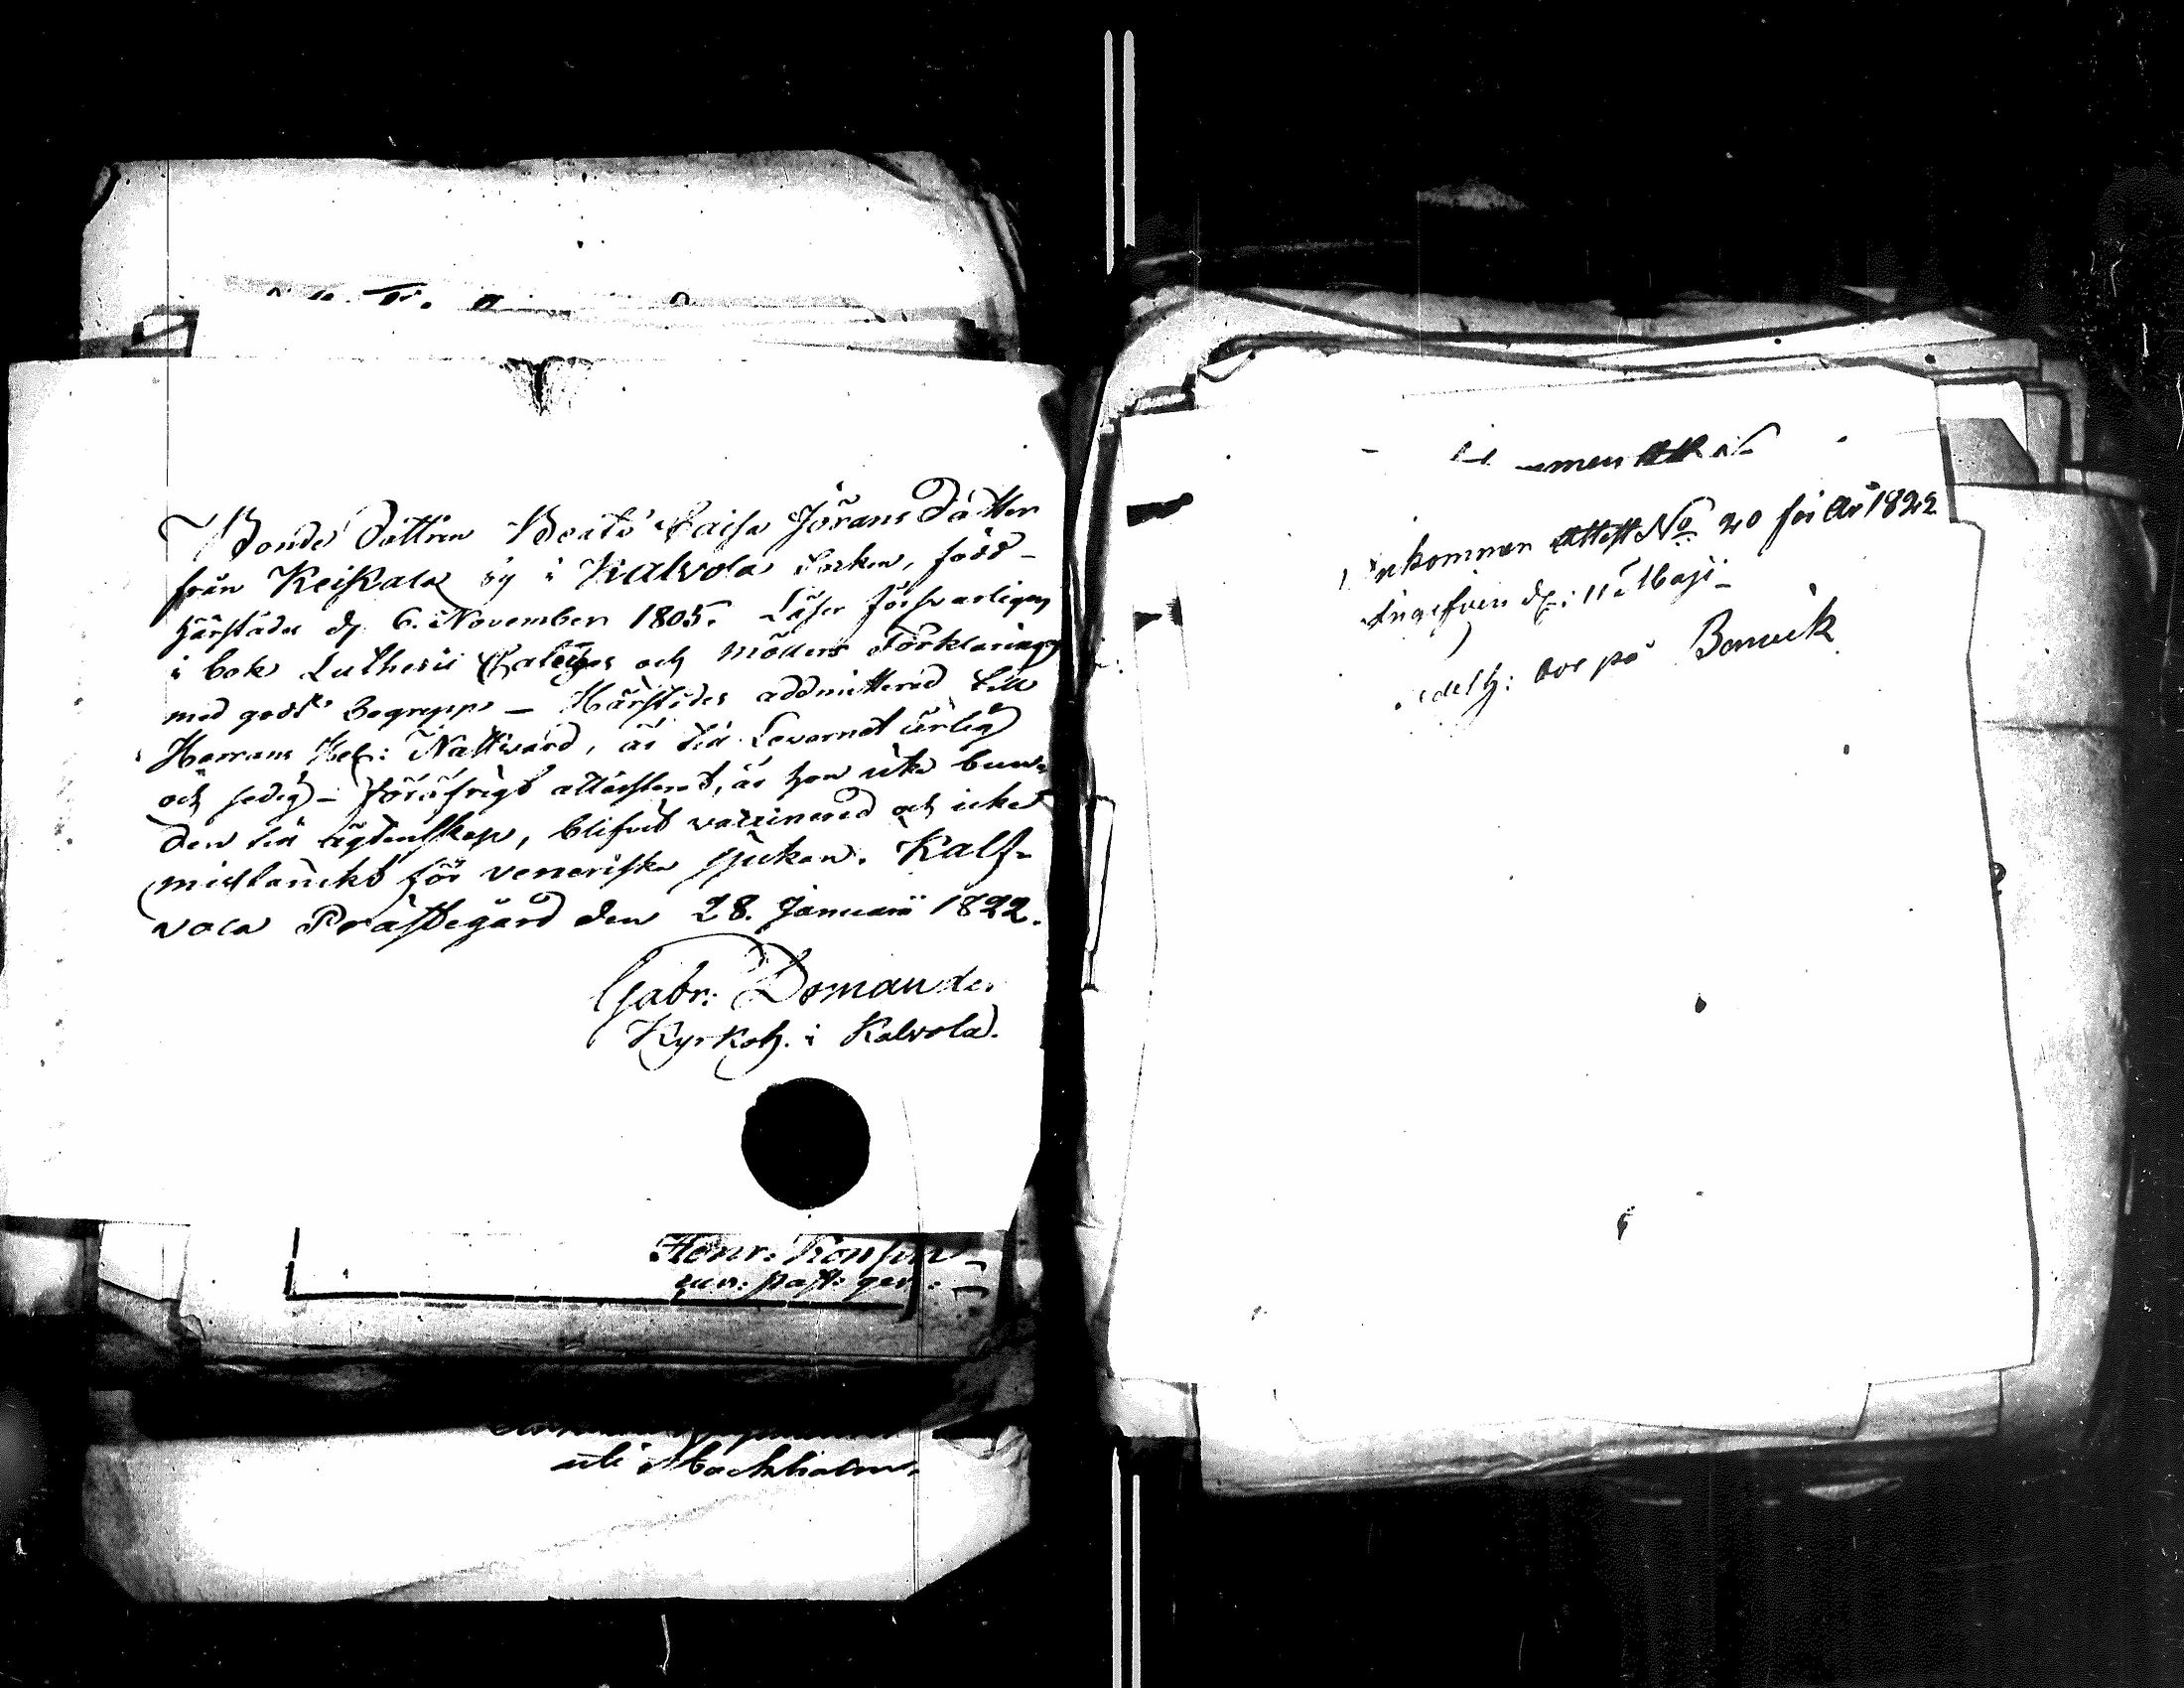 Bonde Dottren Beata Caisa Jörans Dotter
från Keikala by i Kalvola Socken, född
härstädes d. 6. November 1805. Läser försvarligen
i bok Lutheri Cateches och Möllers Förklaring
med godt begrepp – Härstädes admitterad till
Herrans Hel: Nattward, är till Levernet ärlig
och sedig – Föröfrigt attesteras, är hon icke bun-
den till ägtenskap, blifvit vaccinerad och icke
misstänckt för veneriska sjukan. Kalf-
vola Prästegård den 28. Januarii 1822.
Gabr: Domander
Kyrkoh. i Kalvola.
Henr:
past:
uti Stockholm
inkommen Attest No 20 för År 1822
d: 11 Maji
på